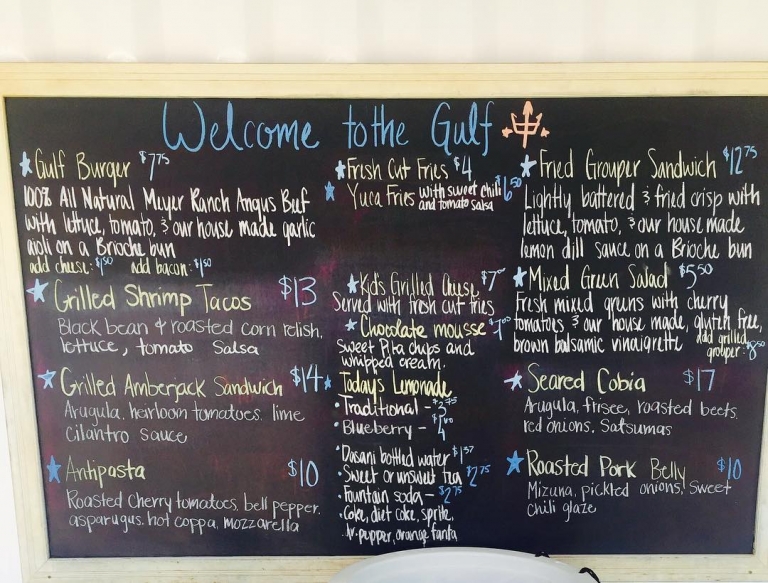 Welcome to the Gulf
Gulf Burger $7.75
100% All Natural Meyer Ranch Angus Beef
with lettuce, tomato, & our house made garlic
aioli on a Brioche bun
add cheese: $1.50 add bacon: $1.50
Grilled Shrimp Tacos $13
Black bean & roasted corn relish,
lettuce, tomato salsa
Grilled Amberjack Sandwich $14
Arugula, heirloom tomatoes, lime
Cilantro sauce
Antipasta $10
Roasted cherry tomatoes, bell pepper,
asparugus, hot coppa, mozzarella
Fresh Cut Fries $4
Yuca Fries with sweet chili $6.50
and tomato salsa
Kid's Grilled Cheese $7
Served with fresh cut fries
Chocolate mousse
Sweet Pita chips and
whipped cream.
Today's Lemonade
• Traditional - $3.75
• Blueberry -
• Dasani bottled water $1.37
• Sweet or unsweet tea $2.75
• Fountain soda - $2.75
Coke, diet coke, sprite,
Dr. pepper, orange fanta
Fried Grouper Sandwich $12.75
Lightly battered & fried crisp with
lettuce, tomato, & our house made
lemon dill sauce on a Brioche bun
Mixed Green Salad $5.50
Fresh mixed greens with cherry
tomatoes & our house made, gluten free,
brown balsamic vinaigrette add grilled
grouper: $8.50
Seared Cobia $17
Arugula, frisee, roasted beets,
red onions, Satsumas
Roasted Pork Belly $10
Mizuna, pickled onions, sweet
chili glaze